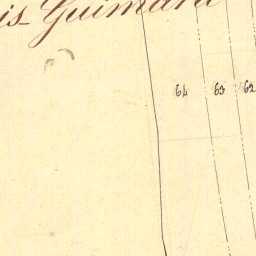 is Guimard
64 63 62